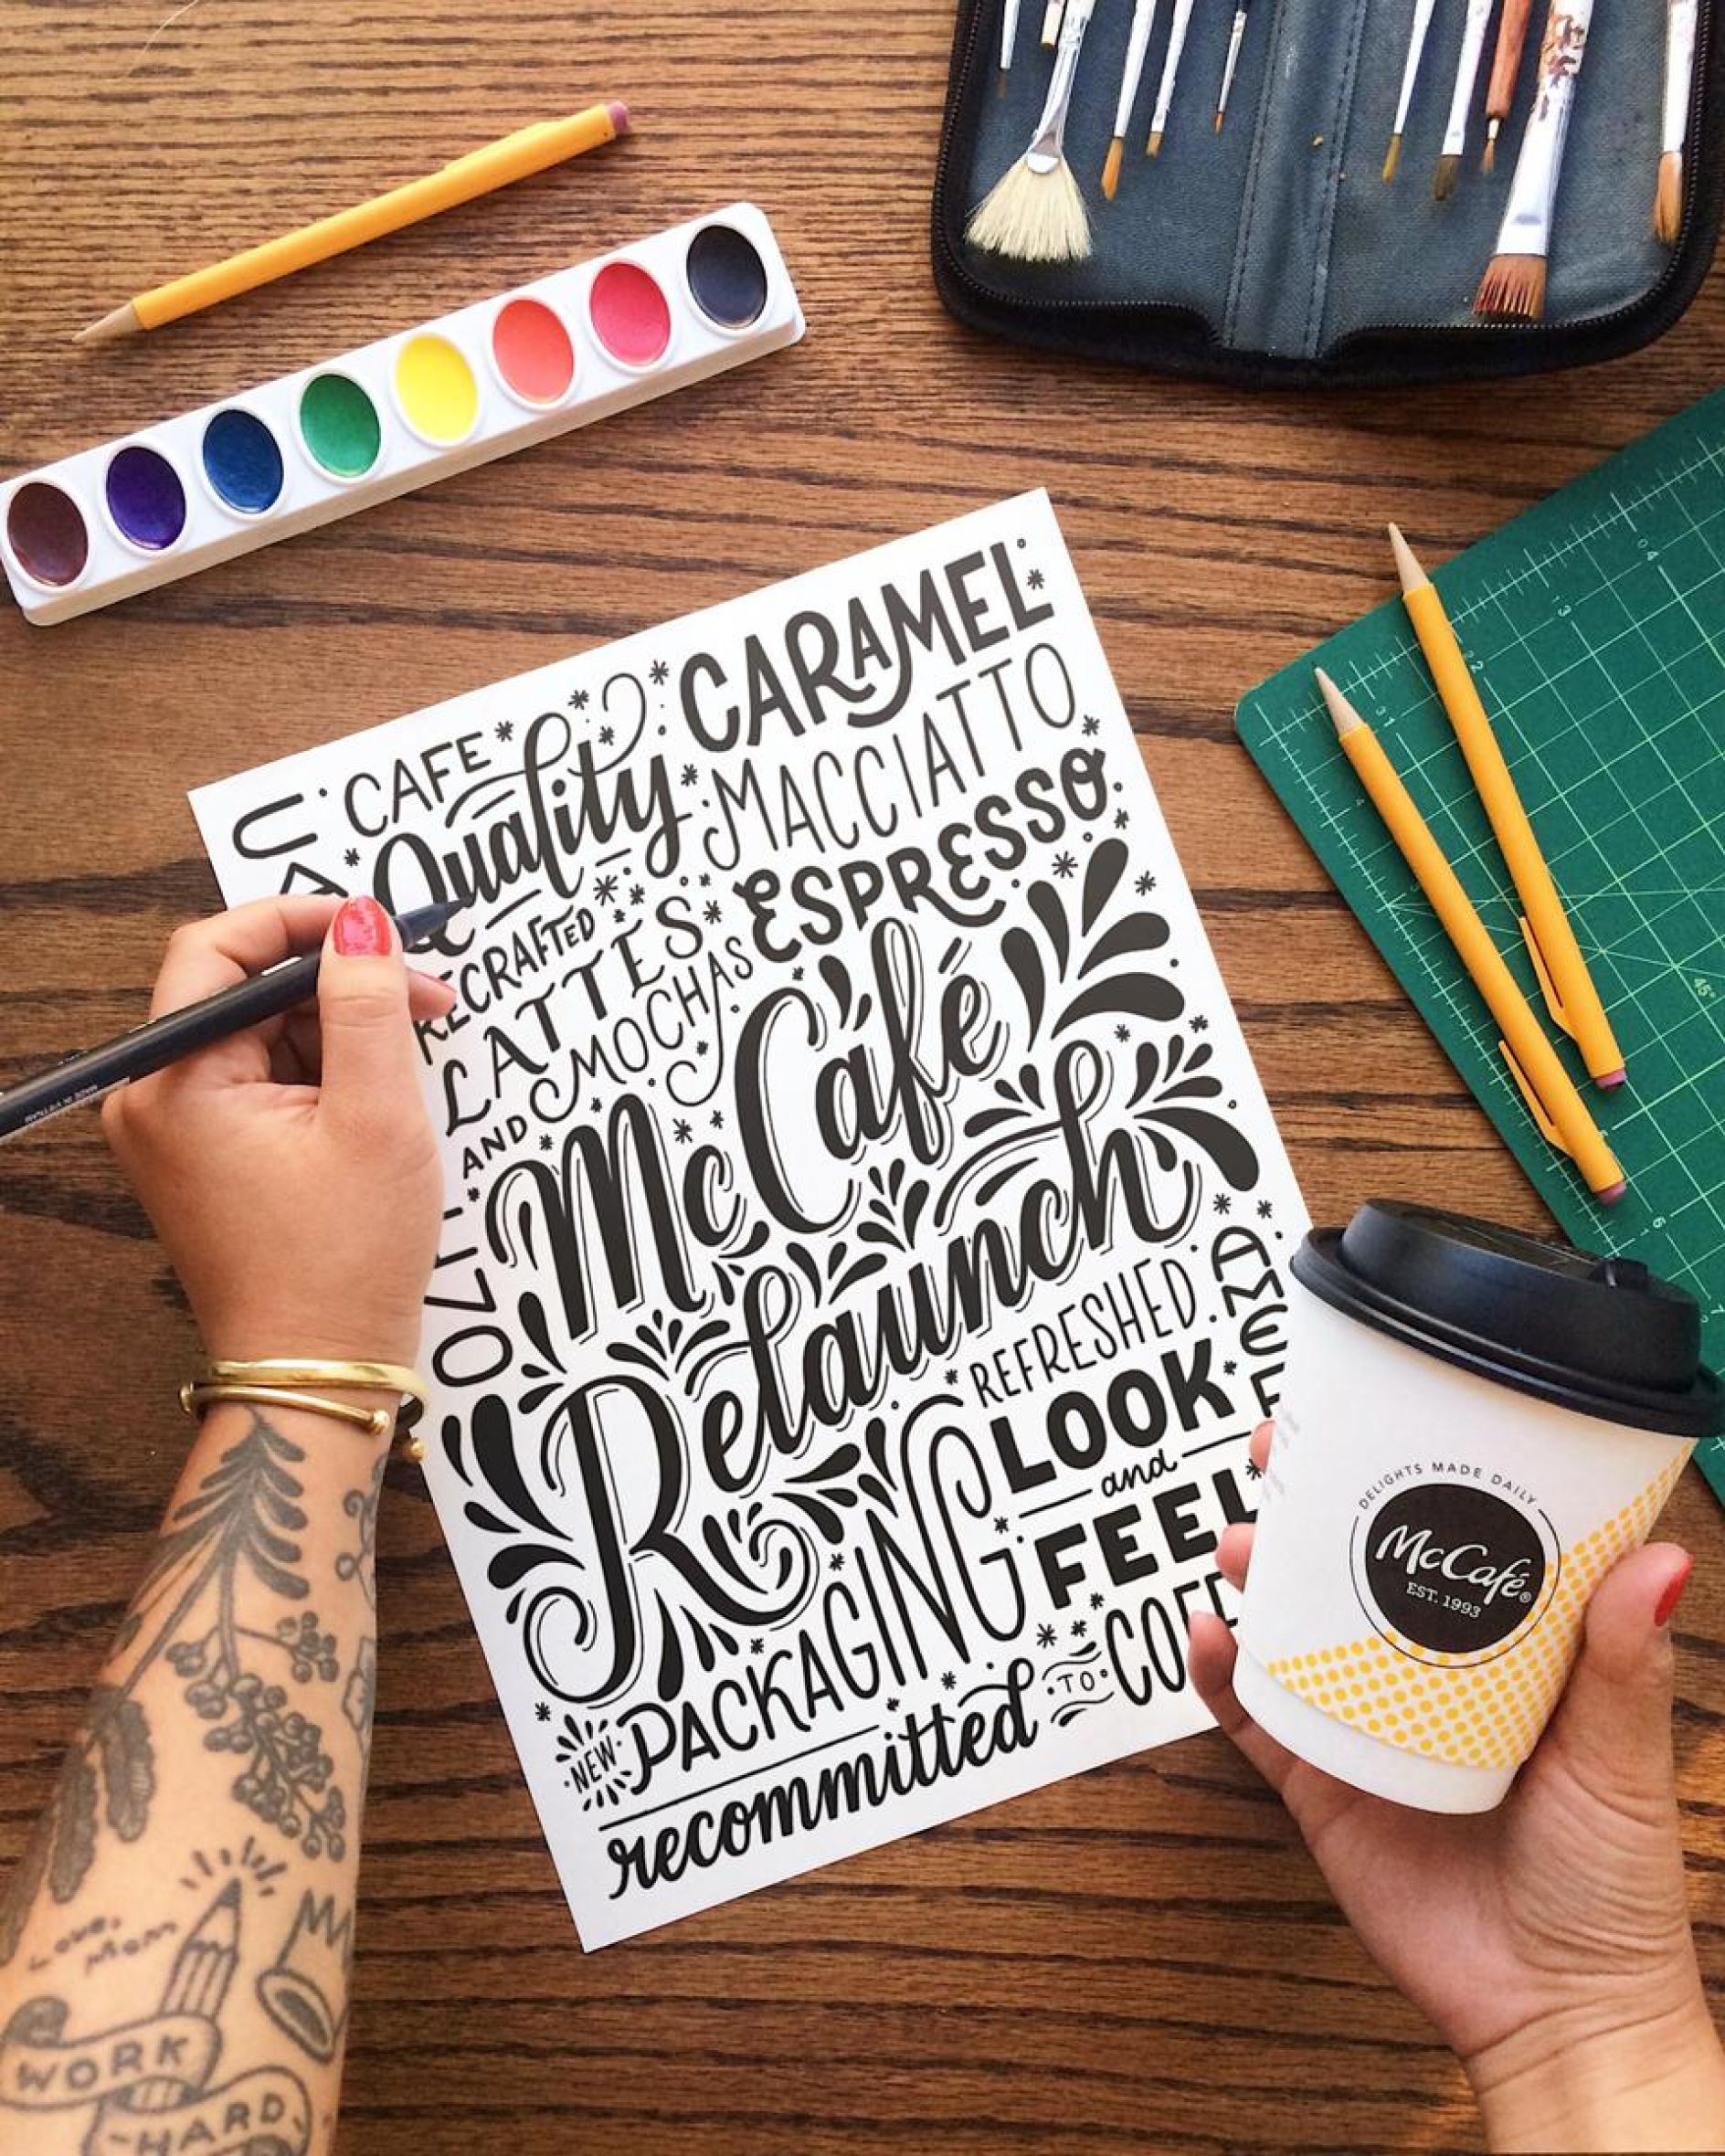 CAFE
Quality
CARAMEL
MACCIATTO
ESPRESSO
LATTES
AND MOCHAS
McCafé
Relaunch
REFRESHED
LOOK
and
FEEL
NEW PACKAGING
recommitted TO
DELIGHTS MADE DAILY
McCafé®
EST. 1993
Love,
Mom
WORK
HARD
45°